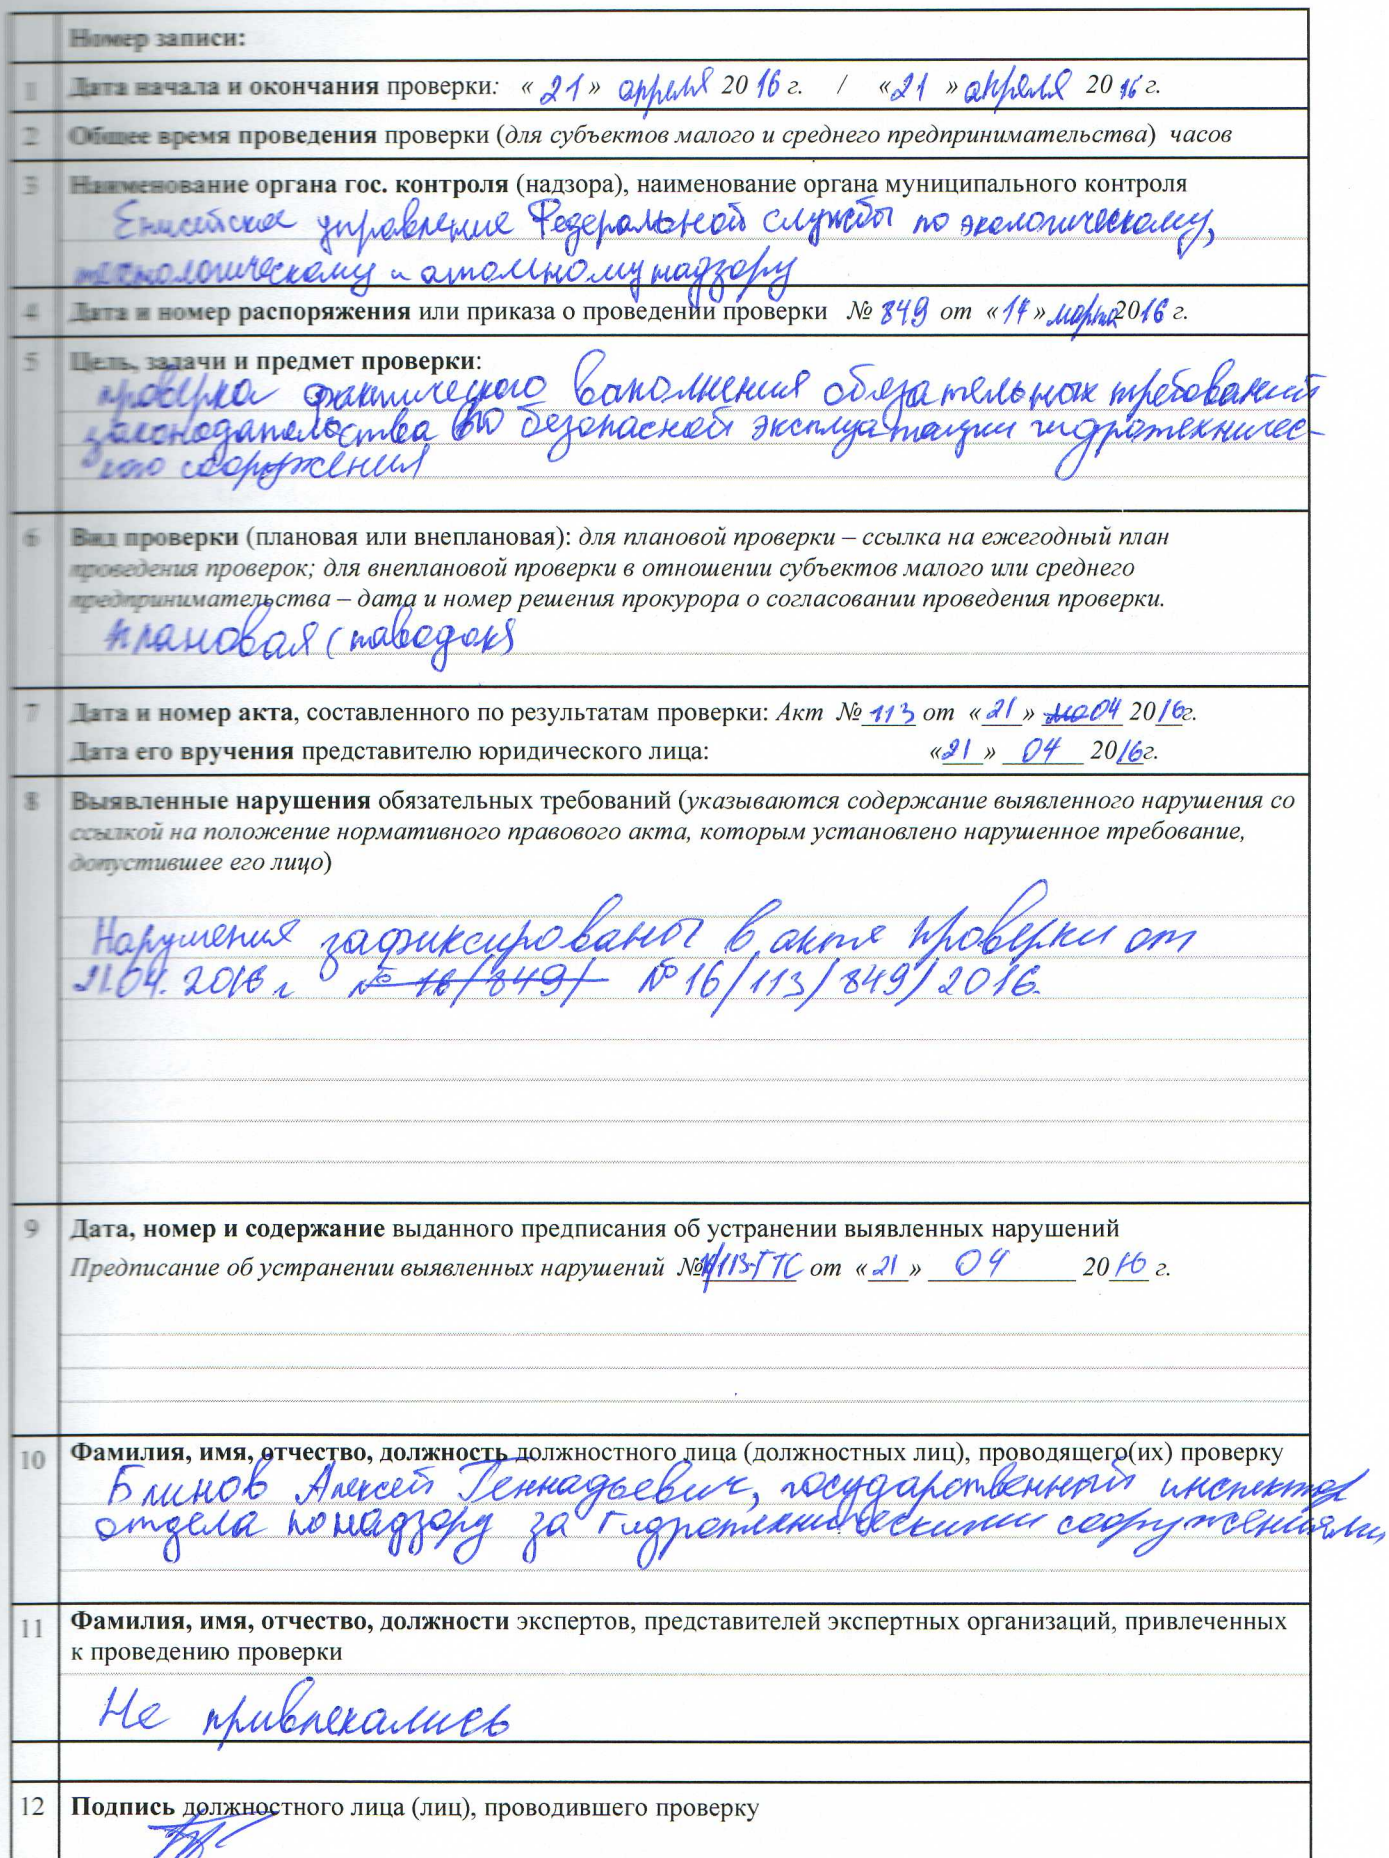 Номер записи:
1 Дата начала и окончания проверки: «21» апреля 2016 г. / «21» апреля 2016 г.
2 Общее время проведения проверки (для субъектов малого и среднего предпринимательства) часов
3 Наименование органа гос. контроля (надзора), наименование органа муниципального контроля
Енисейское управление Федеральной службы по экологическому,
технологическому и атомному надзору
4 Дата и номер распоряжения или приказа о проведении проверки № 849 от «17» марта 2016 г.
5 Цель, задачи и предмет проверки:
проверка фактического выполнения обязательных требований
законодательства по безопасной эксплуатации гидротехничес-
кого сооружения
6 Вид проверки (плановая или внеплановая): для плановой проверки – ссылка на ежегодный план
проведения проверок; для внеплановой проверки в отношении субъектов малого или среднего
предпринимательства – дата и номер решения прокурора о согласовании проведения проверки.
плановая (паводок)
7 Дата и номер акта, составленного по результатам проверки: Акт № 113 от «21» 04 2016г.
Дата его вручения представителю юридического лица: «21» 04 2016г.
8 Выявленные нарушения обязательных требований (указываются содержание выявленного нарушения со
ссылкой на положение нормативного правового акта, которым установлено нарушенное требование,
допустившее его лицо)
Нарушения зафиксированы в акте проверки от
21.04.2016 г № 16/849/ № 16/113/849/2016.
9 Дата, номер и содержание выданного предписания об устранении выявленных нарушений
Предписание об устранении выявленных нарушений № от «21» 04 2016 г.
10 Фамилия, имя, отчество, должность должностного лица (должностных лиц), проводящего(их) проверку
Блинов Алексей Геннадьевич, государственный инспектор
отдела по надзору за гидротехническими сооружениями
11 Фамилия, имя, отчество, должности экспертов, представителей экспертных организаций, привлеченных
к проведению проверки
Не привлекались
12 Подпись должностного лица (лиц), проводившего проверку